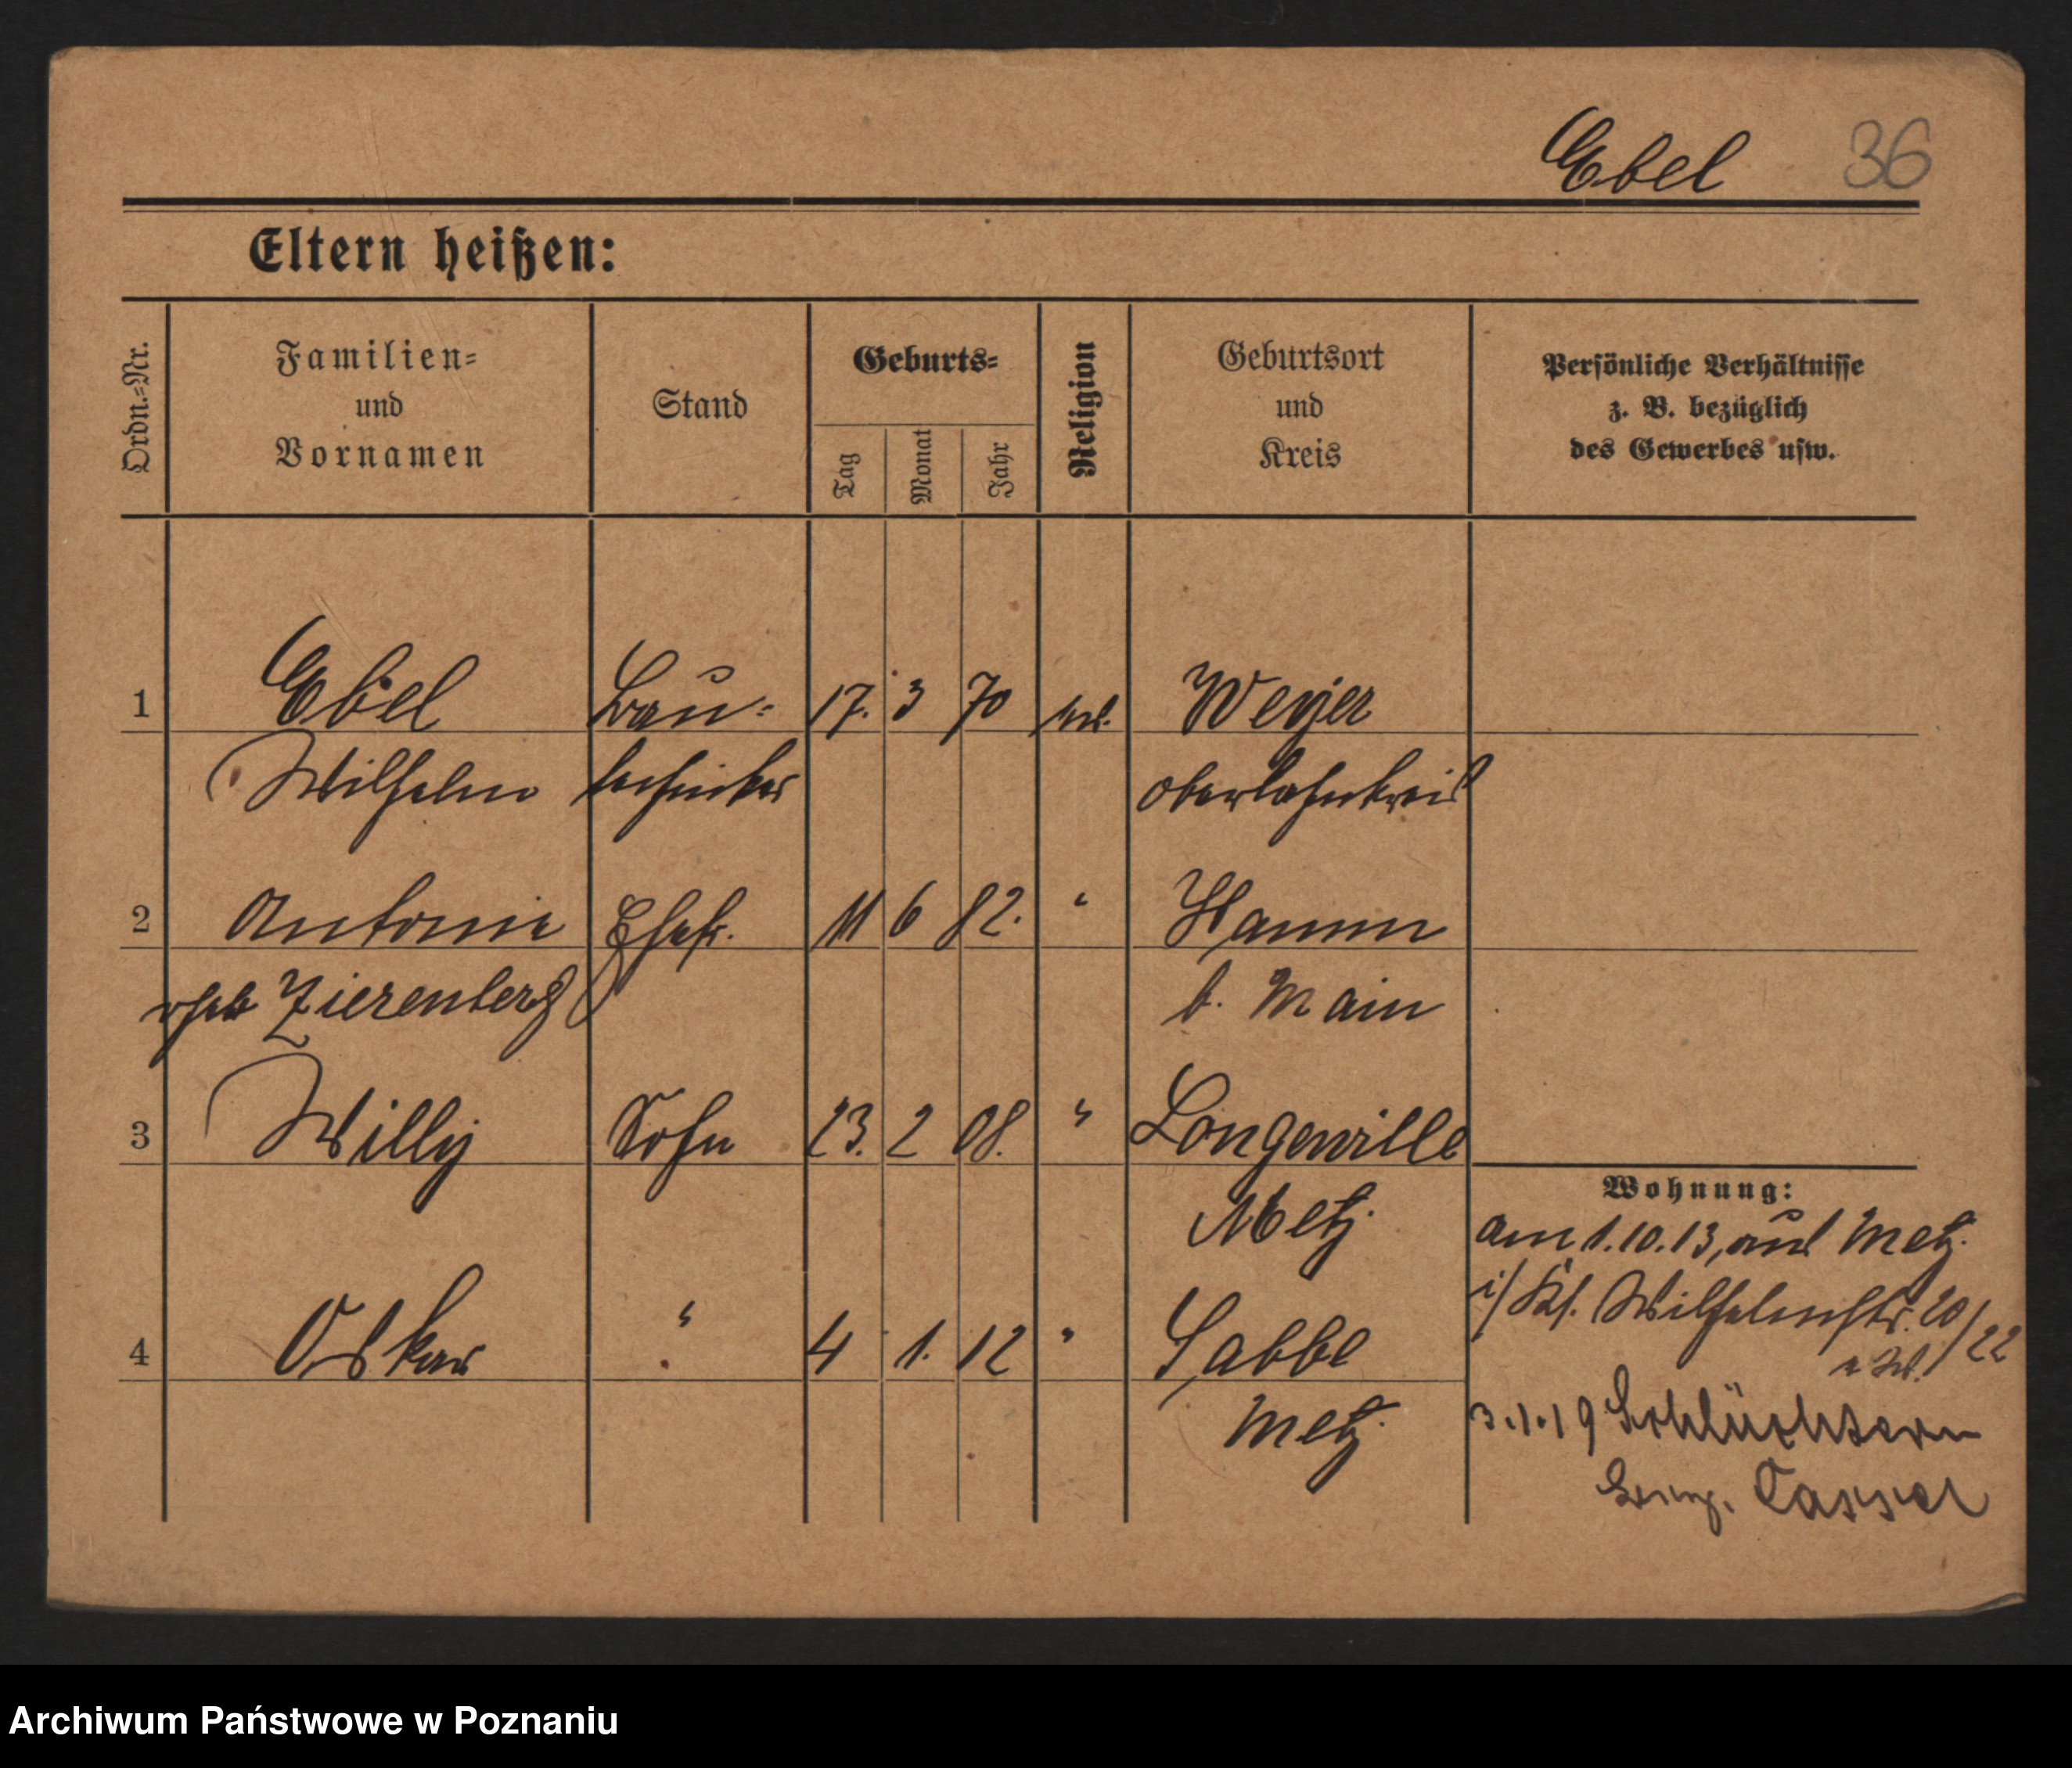 Ebel 36
Eltern heißen:
Ordn.=Nr.
Familien=
und
Vornamen
Stand
Geburts=
Tag
Monat
Jahr
Religion
Geburtsort
und
Kreis
Persönliche Verhältnisse
z. B. bezüglich
des Gewerbes usw.
1 Ebel Bau= 17. 3 70 Weyer
Wilhelm techniker Oberlahnkreis
2 Antonie Ehefr. 11 6 82. " Hamm
geb Zierenberg b. Main
3 Willy Sohn 23. 2 08. " Longeville
Metz.
4 Oskar " 4 1. 12 " Sabbe
Metz.
Wohnung:
am 1.10.13, aus Metz.
Wilhelmstr. 20/22
3.1.19 Schlüchtern
Cassel
Archiwum Państwowe w Poznaniu